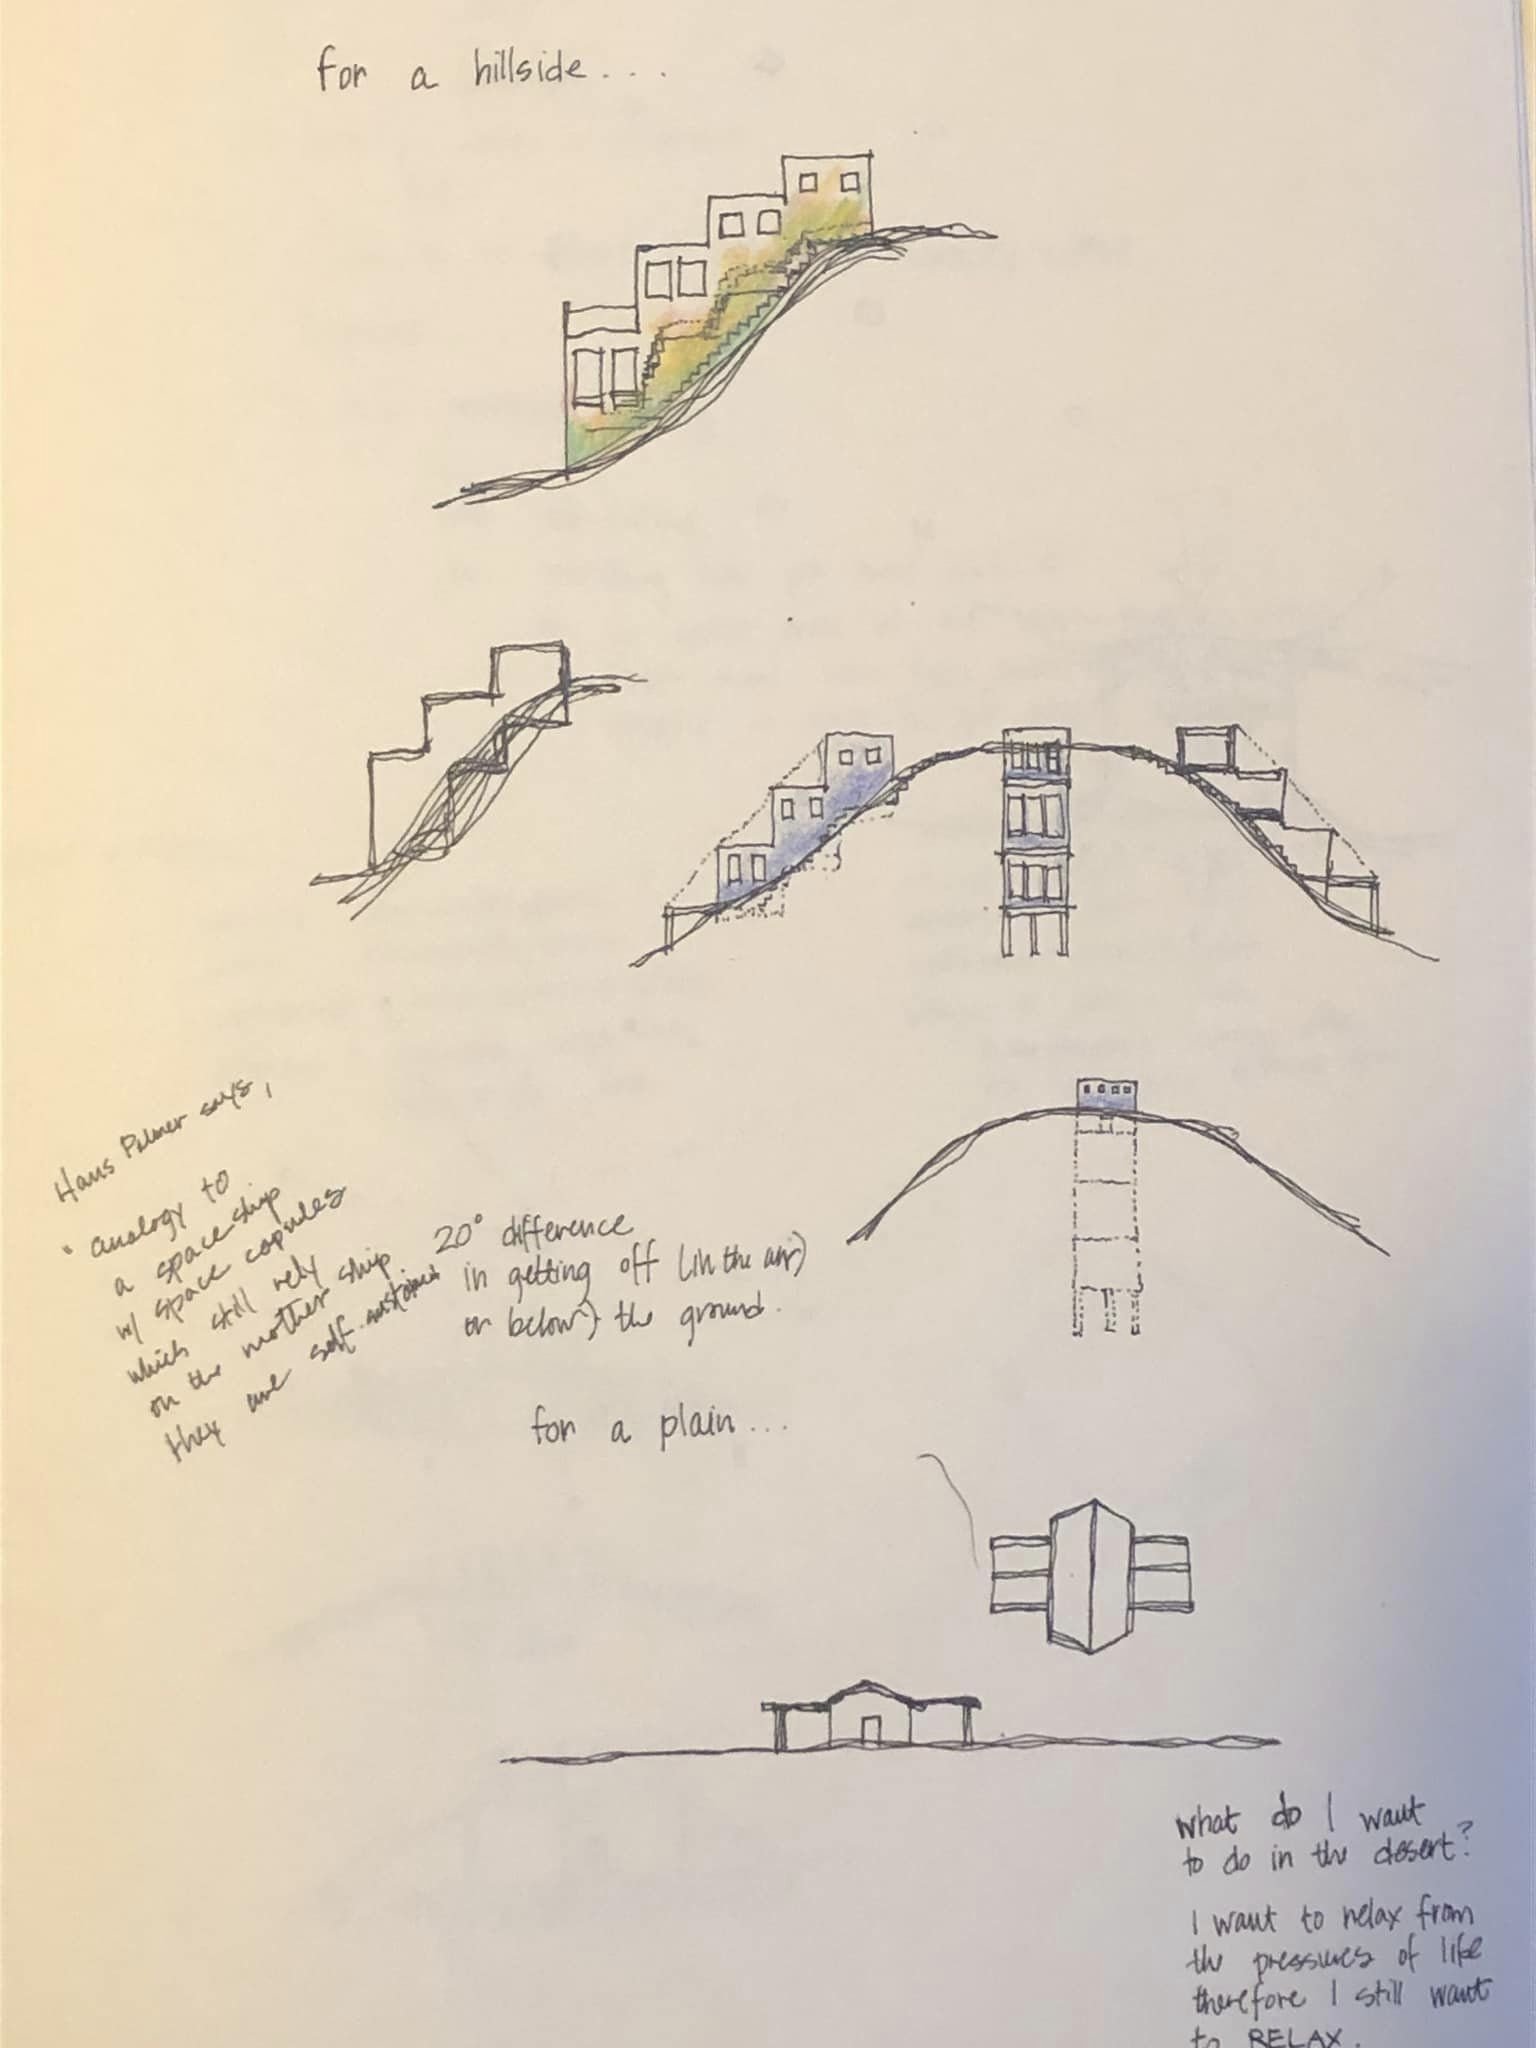 for a hillside....
Hans Palmer says,
" analogy to
a space ship
w/ space capsules
which still rely
on the mother ship.
they are self-sustained
20° difference
in getting off (in the air)
or below) the ground.
for a plain...
what do I want
to do in the desert?
I want to relax from
the pressures of life
therefore I still want
to RELAX.